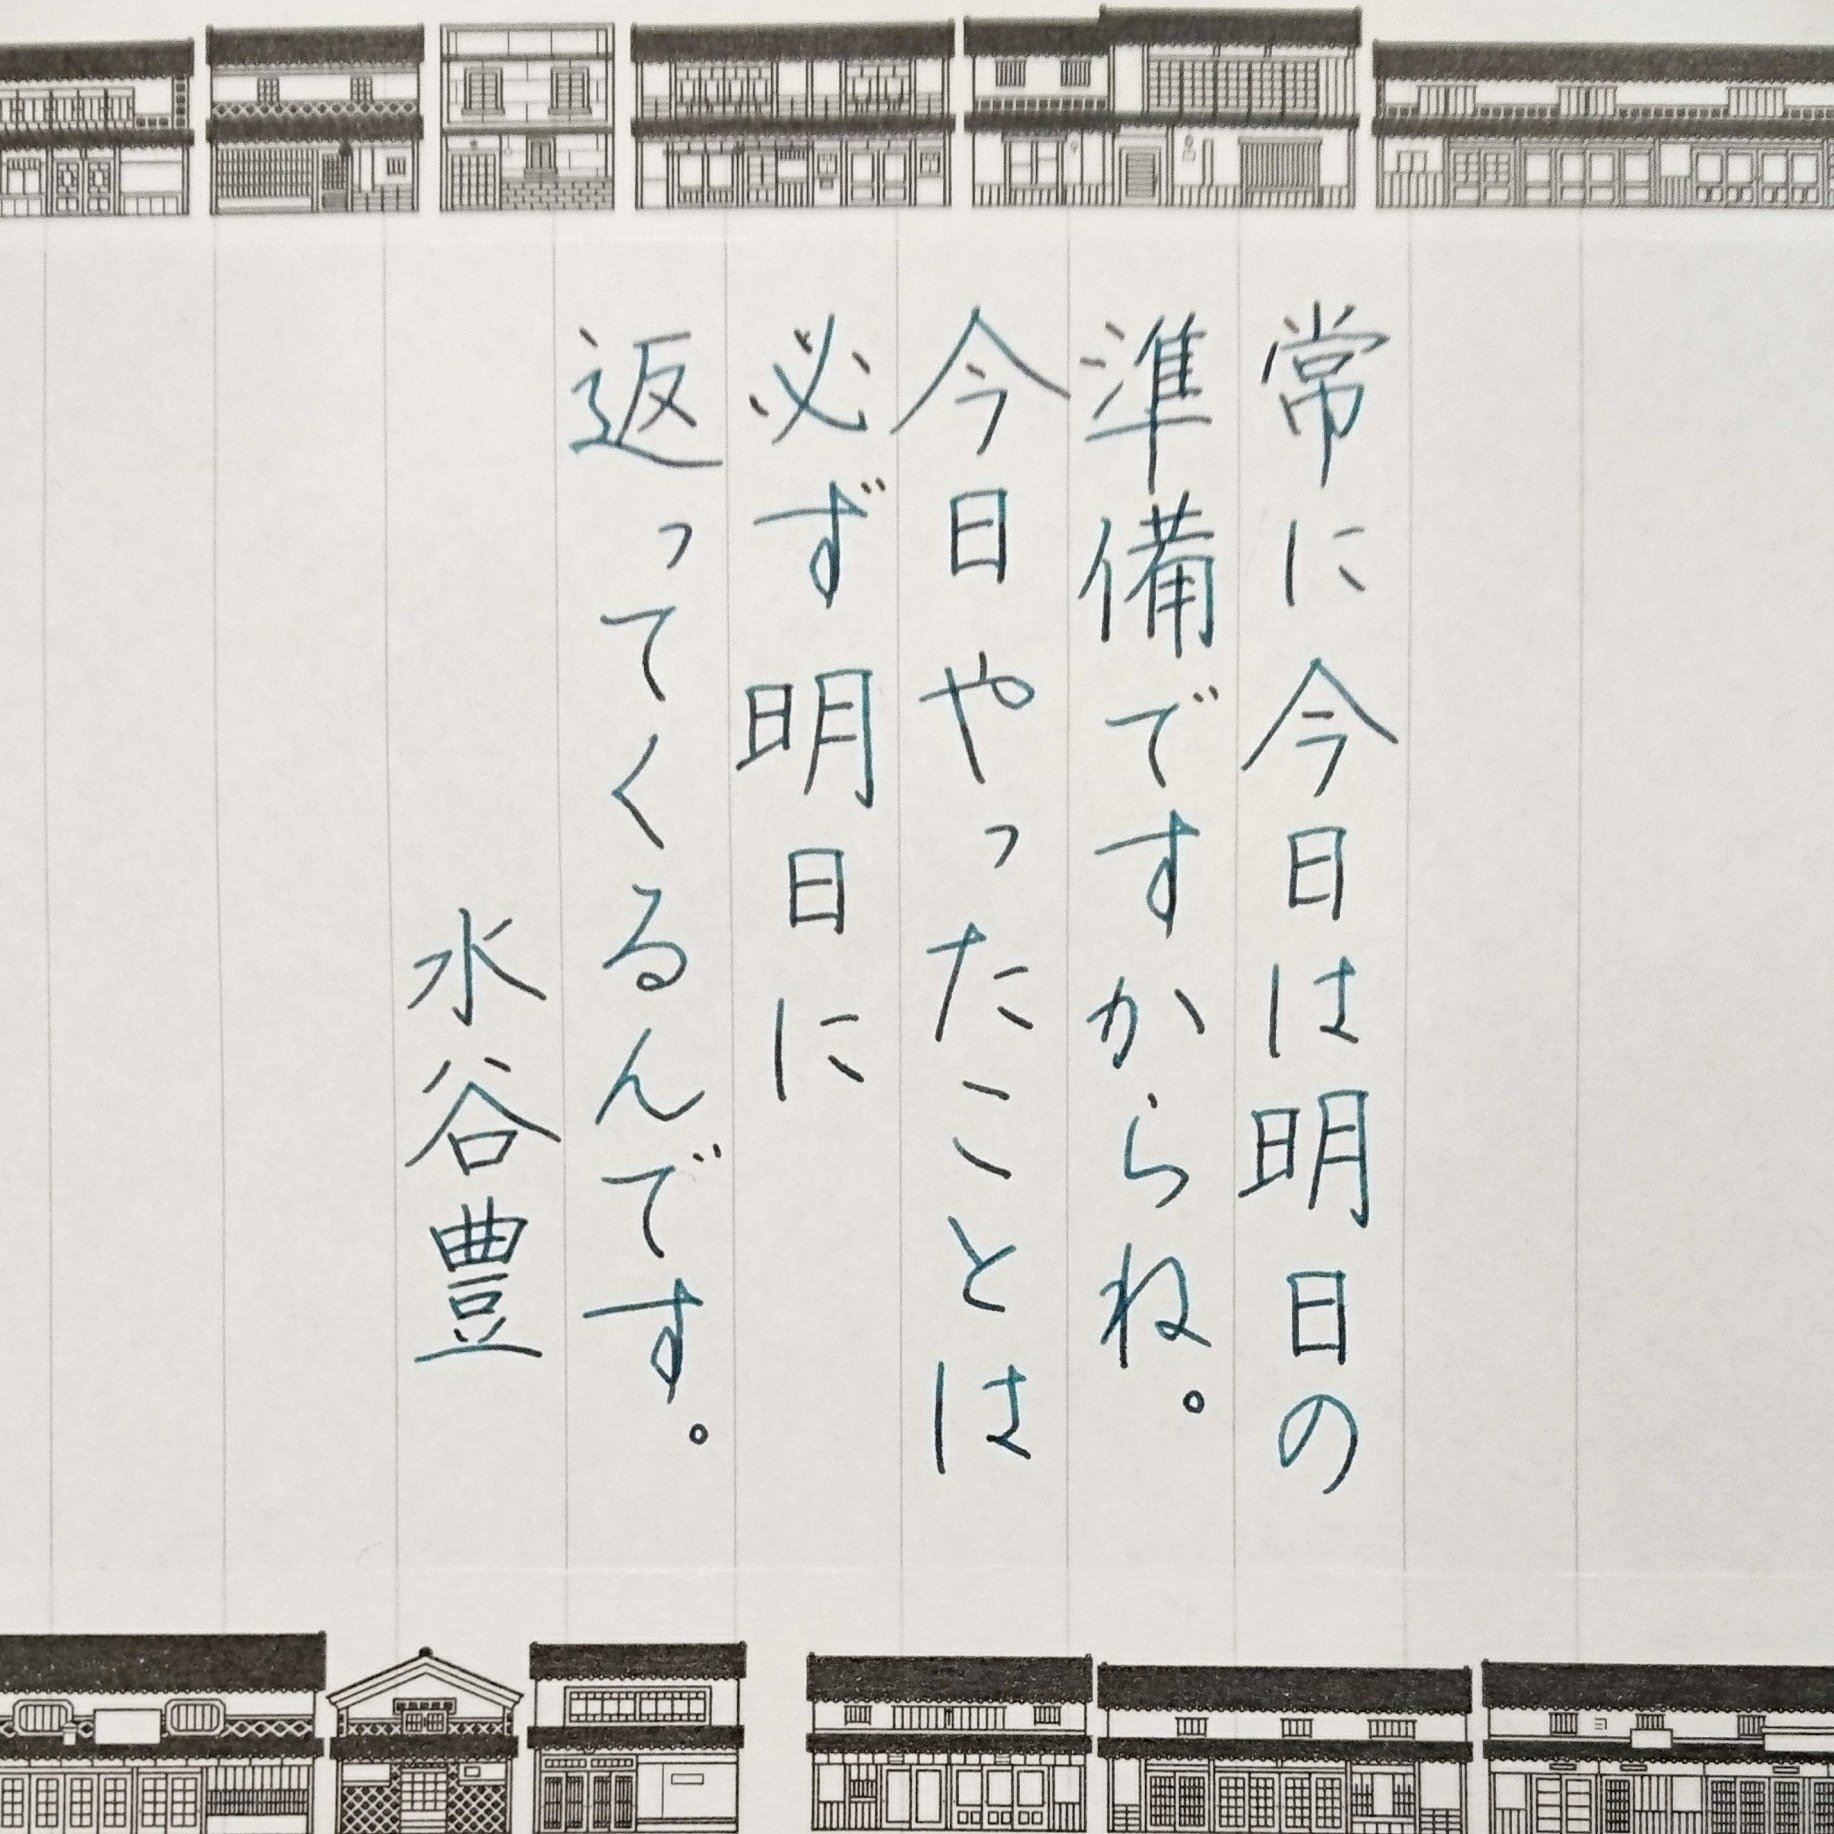 常に今日は明日の
準備ですからね。
今日やったことは
必ず明日に
返ってくるんです。
水谷豊